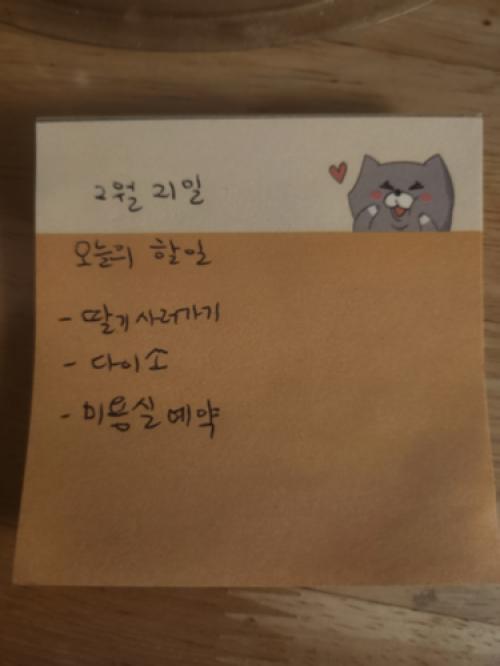 2월 21일
오늘의 할일
- 딸기 사러가기
- 다이소
- 미용실 예약